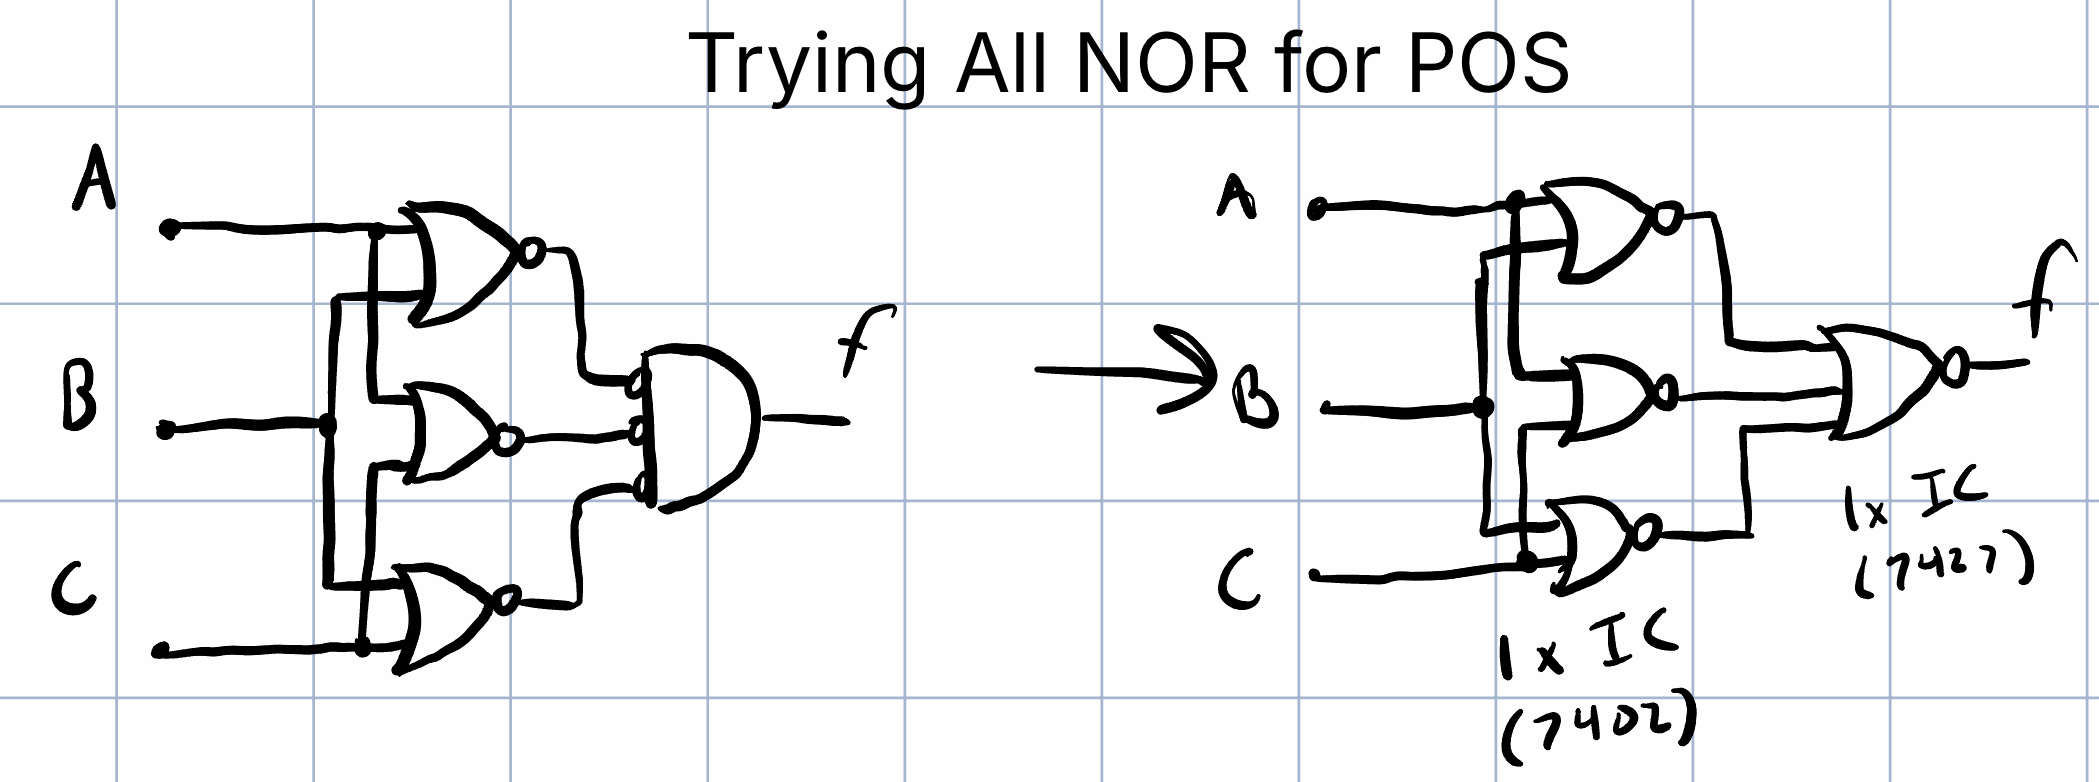 Trying All NOR for POS
A
B
C
f
A
B
C
f
1x IC
(7427)
1x IC
(7402)